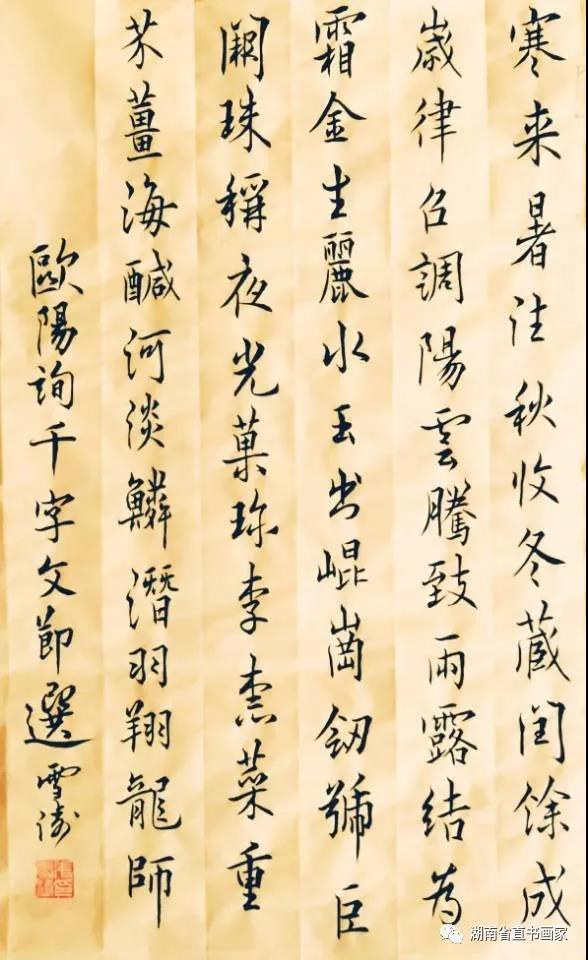 寒来暑往秋收冬蔵闰餘成
歲律召調陽雲騰致雨露結為
霜金生麗水玉出崐崗劒號臣
闕珠稱夜光菓珍李柰菜重
芥薑海醎河淡鱗潛羽翔龍師
歐陽詢千字文節選雪涛
湖南省直书画家